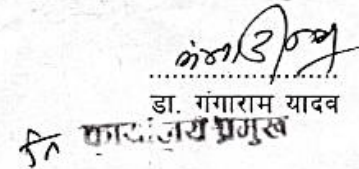 डा. गंगाराम यादव
कार्यालय प्रमुख